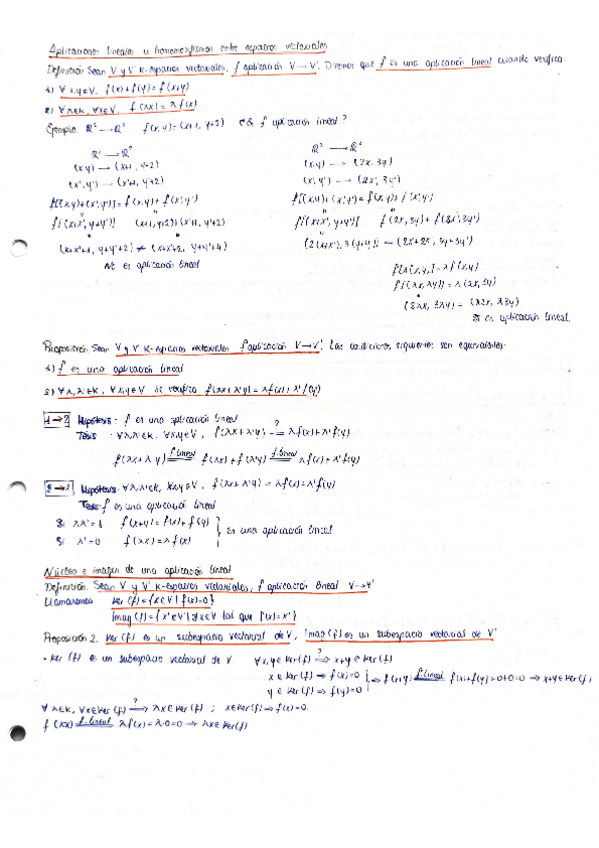 Aplicaciones lineales u homomorfismos entre espacios vectoriales
Definición Sean V y V' K-espacios vectoriales, f aplicación V→V'. Diremos que f es una aplicación lineal cuando verifica:
1) ∀x,y∈V, f(x)+f(y)=f(x+y)
2) ∀λ∈K, ∀x∈V, f(λx)=λf(x)
Ejemplo. ℝ² → ℝ² f(x,y)=(x+1, y+2) f aplicación lineal?
ℝ² → ℝ² ℝ² → ℝ²
(x,y) → (x+1, y+2) (x,y) → (2x, 3y)
(x',y') → (x'+1, y'+2) (x',y') → (2x', 3y')
f[(x,y)+(x',y')]=f(x,y)+f(x',y') f[(x,y)+(x',y')]=f(x,y)+f(x',y')
f[(x+x', y+y')] (x+1,y+2)+(x'+1, y'+2) f[(x+x', y+y')] f(2x,3y)+f(2x',3y')
(x+x'+1, y+y'+2) ≠ (x+x'+2, y+y'+4) (2(x+x'), 3(y+y')) = (2x+2x', 3y+3y')
No es aplicación lineal
f[λ(x,y)]=λf(x,y)
f[(λx, λy)]=λ(2x, 3y)
(2λx, 3λy) = (λ2x, λ3y)
Sí es aplicación lineal.
Proposición Sean V y V' K-espacios vectoriales f aplicación V→V'. Las condiciones siguientes son equivalentes:
1) f es una aplicación lineal
2) ∀λ,λ'∈K, ∀x,y∈V se verifica f(λx+λ'y)=λf(x)+λ'f(y)
1→2 Hipótesis: f es una aplicación lineal
Tesis: ∀λ,λ'∈K, ∀x,y∈V, f(λx+λ'y) =? λf(x)+λ'f(y)
f(λx+λ'y) =f.lineal f(λx)+f(λ'y) =f.lineal λf(x)+λ'f(y)
2→1 Hipótesis: ∀λ,λ'∈K, ∀x,y∈V, f(λx+λ'y)=λf(x)+λ'f(y)
Tesis: f es una aplicación lineal
Si λ,λ'=1 f(x+y)=f(x)+f(y)
Si λ'=0 f(λx)=λf(x) } Es una aplicación lineal
Núcleo e imagen de una aplicación lineal
Definición. Sean V y V' K-espacios vectoriales, f aplicación lineal V→V'
Llamaremos Ker(f)={x∈V | f(x)=0}
Imag(f)={x'∈V' | ∃x∈V tal que f(x)=x'}
Proposición 2. Ker(f) es un subespacio vectorial de V, Imag(f) es un subespacio vectorial de V'
• Ker(f) es un subespacio vectorial de V ∀x,y∈Ker(f) ⇒? x+y∈Ker(f)
x∈Ker(f) ⇒ f(x)=0
y∈Ker(f) ⇒ f(y)=0 } ⇒ f(x+y) =f.lineal f(x)+f(y)=0+0=0 ⇒ x+y∈Ker(f)
∀λ∈K, ∀x∈Ker(f) ⇒? λx∈Ker(f) ; x∈Ker(f) ⇒ f(x)=0.
f(λx) =f.lineal λf(x)=λ·0=0 ⇒ λx∈Ker(f)